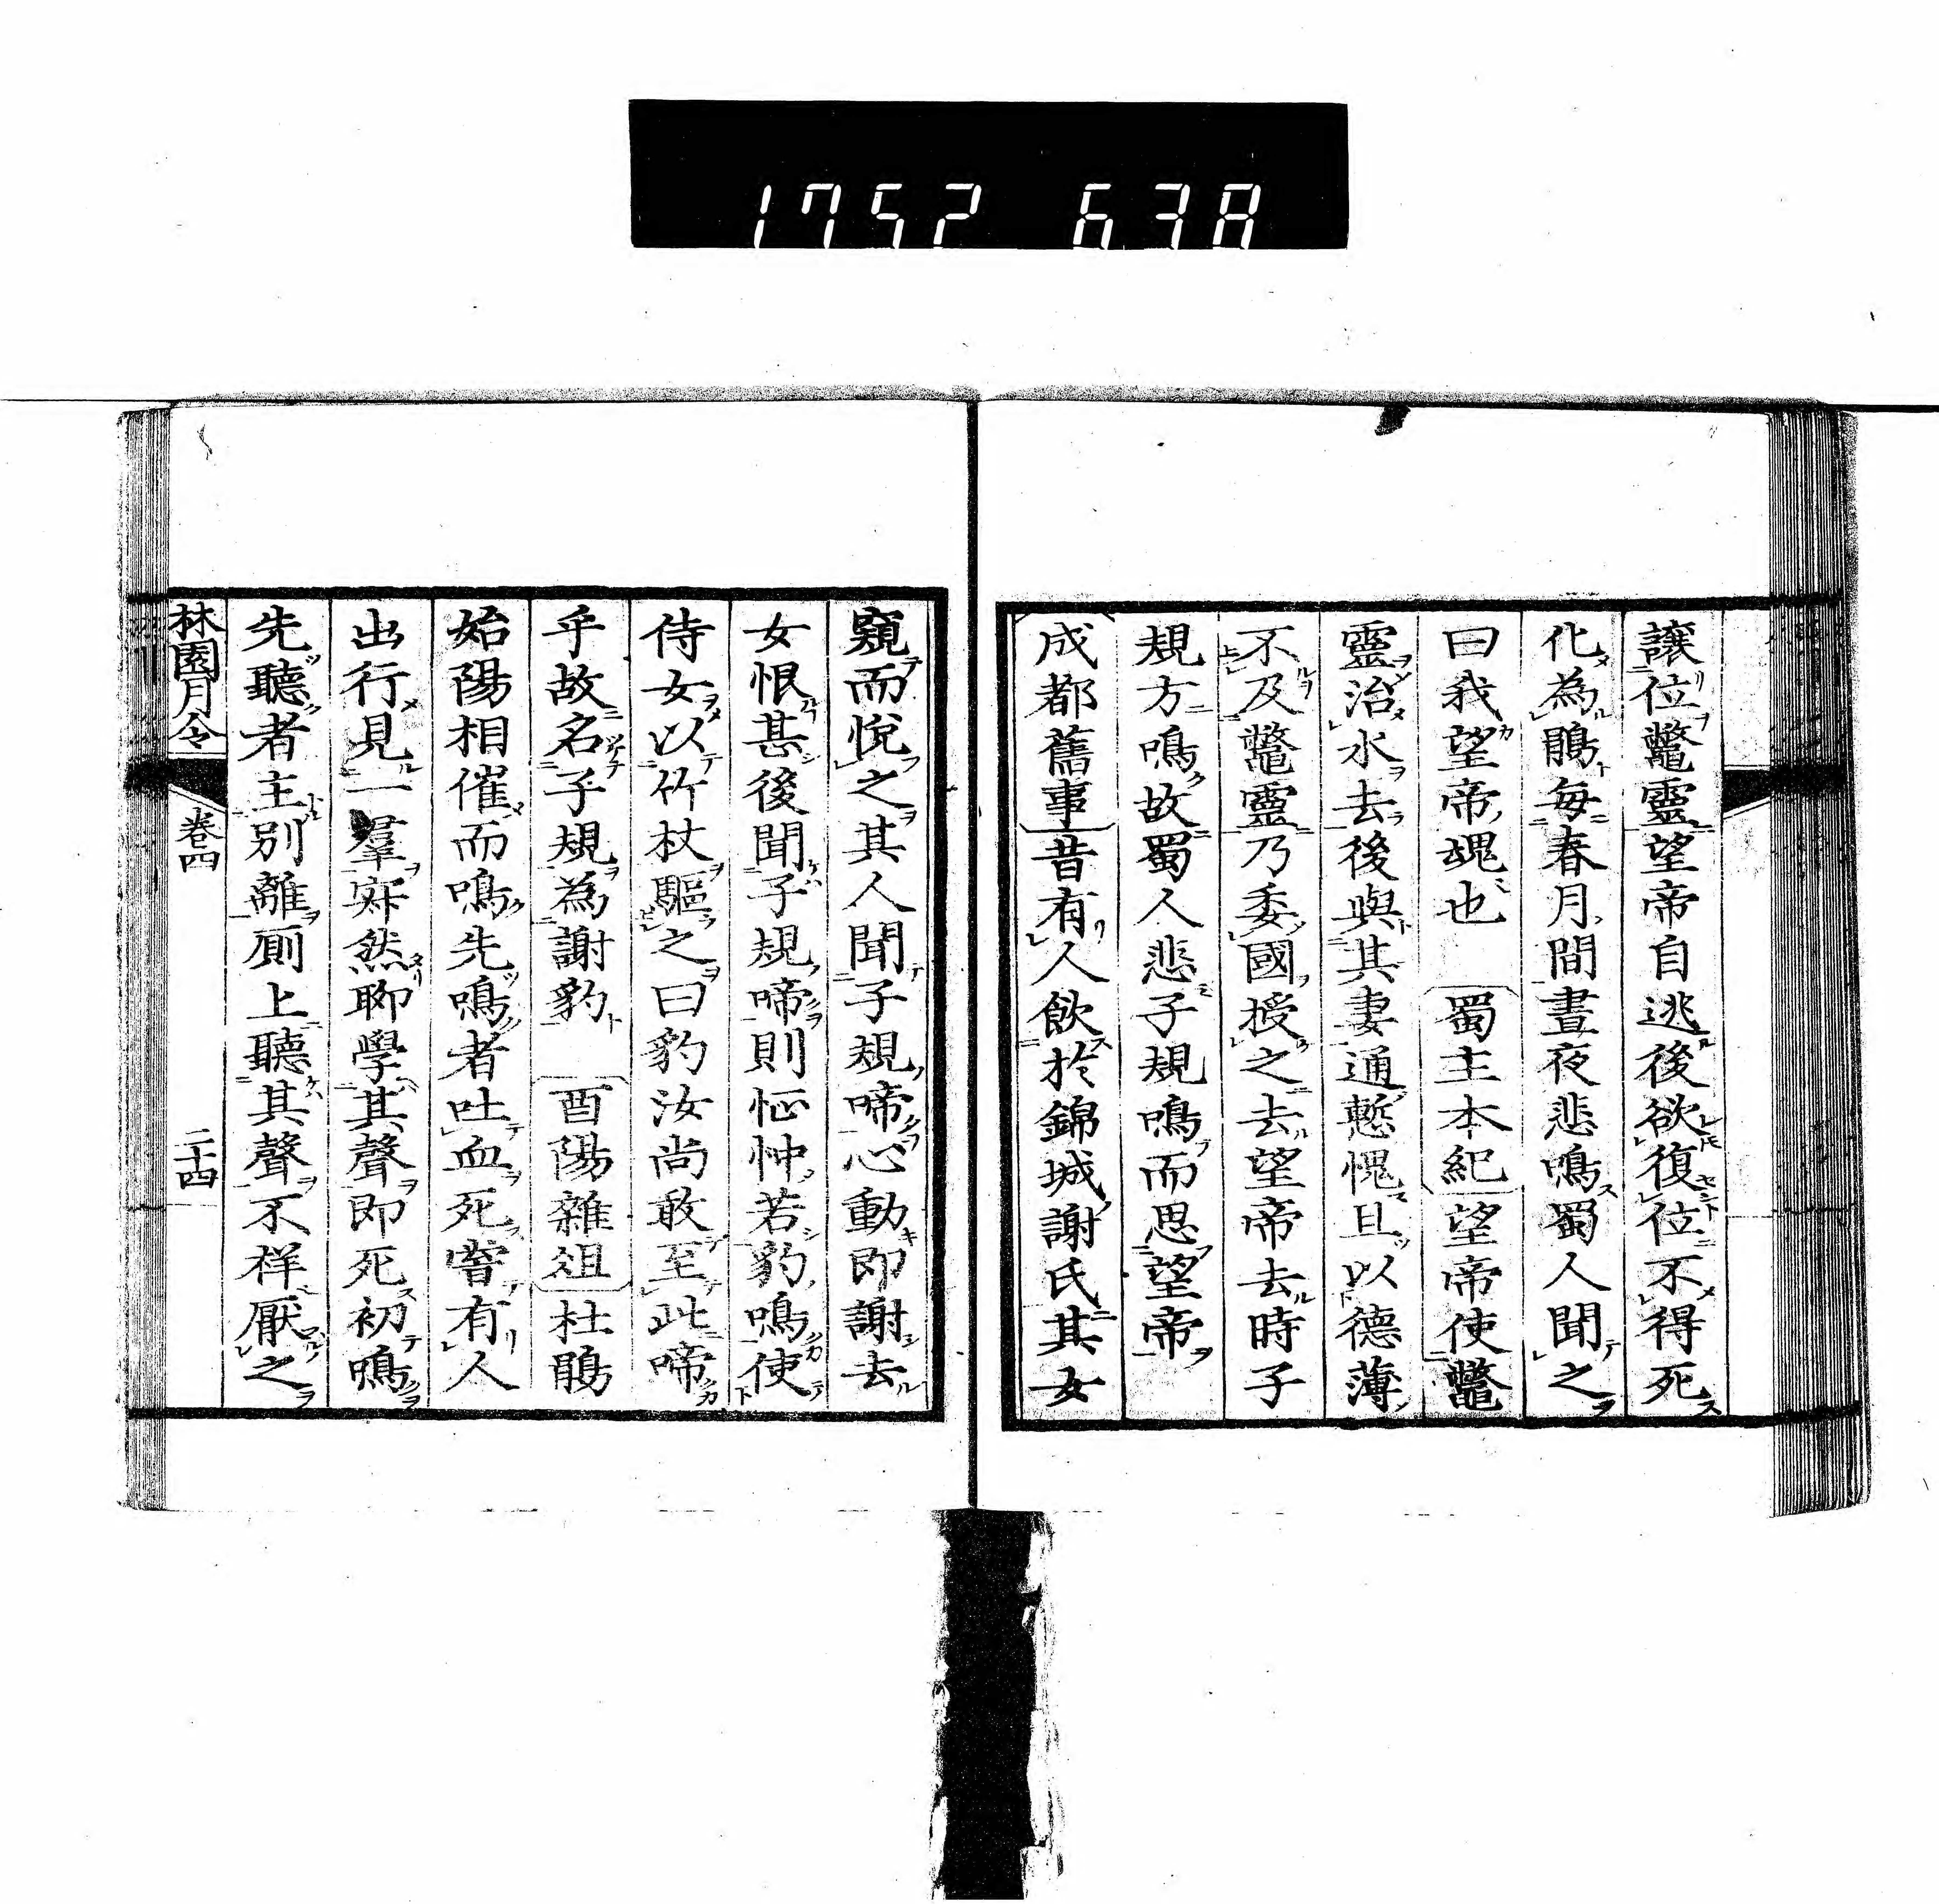 1752 638
讓位鼈靈望帝自逃後欲復位不得死
化為鵑每春月間晝夜悲鳴蜀人聞之
曰我望帝魂也 蜀主本紀望帝使鼈
靈治水去後與其妻通慙愧且以德薄
不及鼈靈乃委國授之去望帝去時子
規方鳴故蜀人悲子規鳴而思望帝
成都舊事昔有人飲於錦城謝氏其女
窺而悅之其人聞子規啼心動即謝去
女恨甚後聞子規啼則怔忡若豹鳴使
侍女以竹杖驅之曰豹汝尚敢至此啼
乎故名子規為謝豹 酉陽雜俎杜鵑
始陽相催而鳴先鳴者吐血死嘗有人
出行見一羣寂然聊學其聲即死初鳴
先聽者主別離厠上聽其聲不祥厭之
林園月令 卷四 二十四